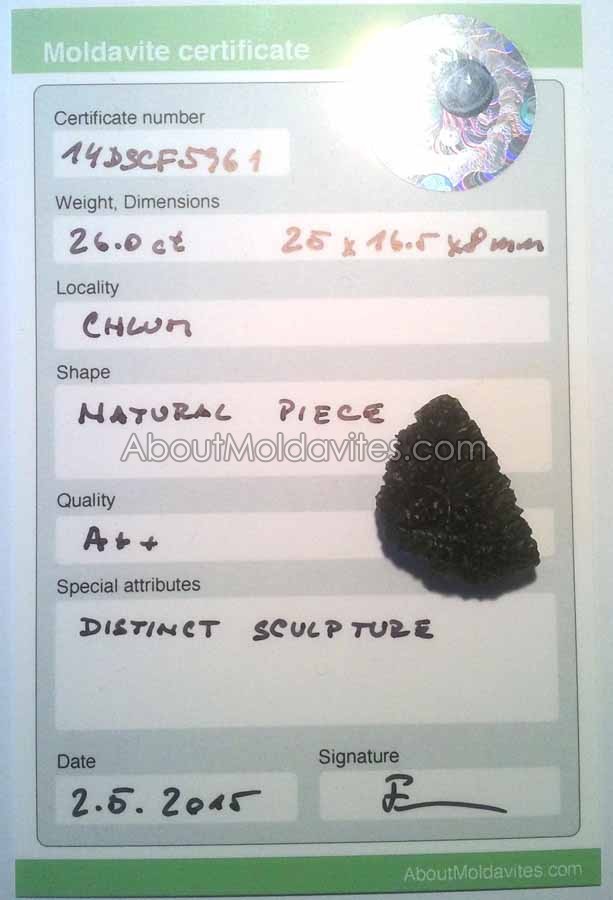 Moldavite certificate
Certificate number
14DSCF5961
Weight, Dimensions
26.0 ct 25 x 16.5 x 8 mm
Locality
CHLUM
Shape
NATURAL PIECE
AboutMoldavites.com
Quality
A++
Special attributes
DISTINCT SCULPTURE
Date Signature
2.5. 2015
AboutMoldavites.com